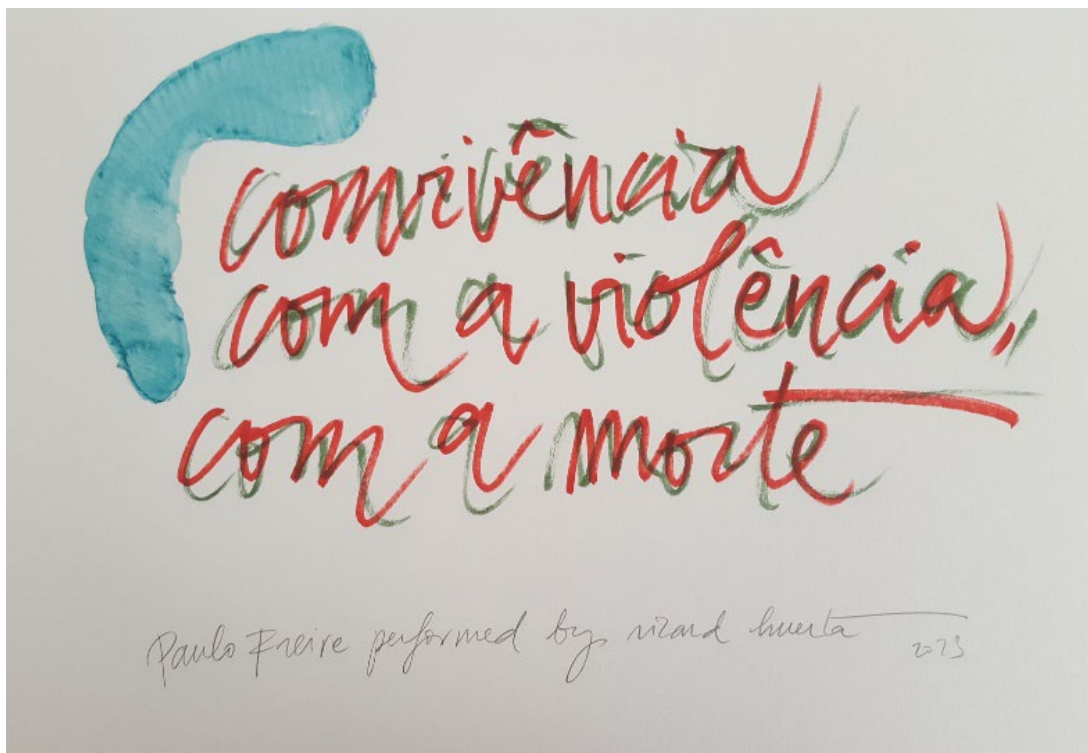 convivência
com a violência,
com a morte
Paulo Freire performed by ricard huerta
2023